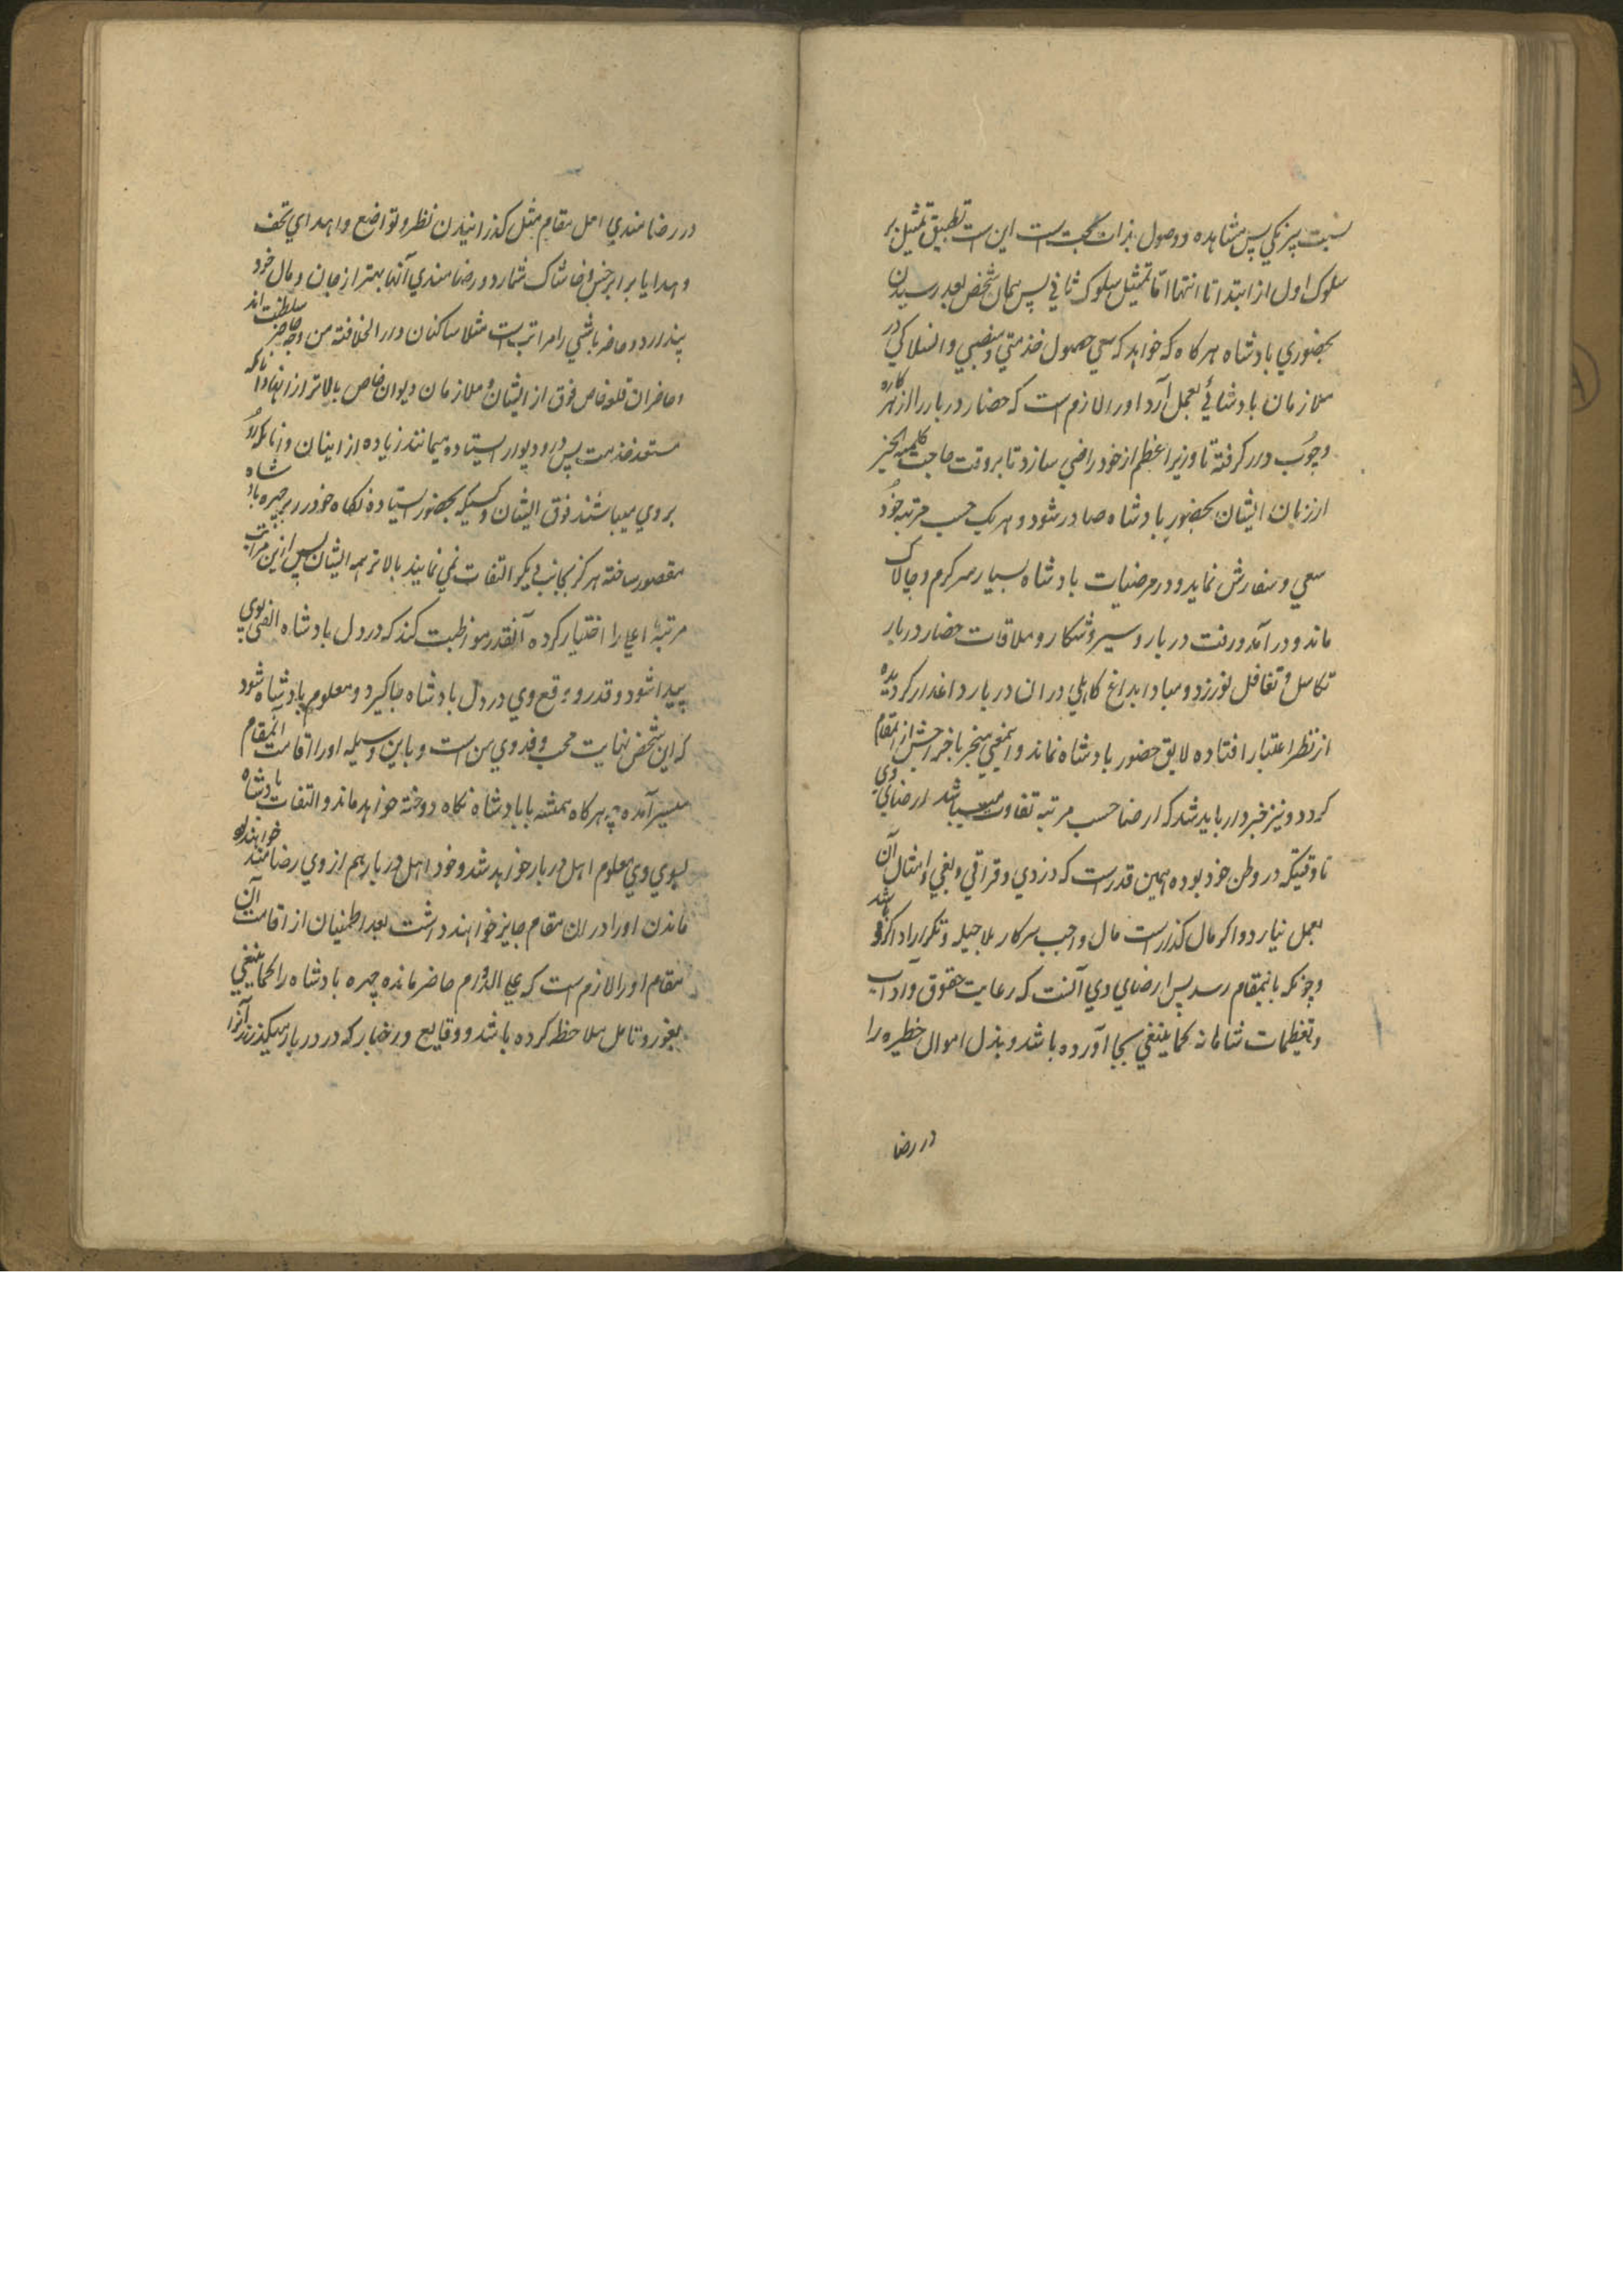 نسبت پیرنکی پس مشاهده و وصول بذات بحت است این است تطبیق تمثیل بر
سلوک اول از ابتدا تا انتها اما تمثیل سلوک ثانی پس همان شخص بعد رسیدن
بحضوری بادشاه هر کاه که خواهد که سعی حصول خدمتی و منصبی و انسلاکی در
ملازمان بادشاهی بعمل آرد او را لازم است که حضار دربار را از
وجوب در کرفته تا وزیر اعظم از خود راضی سازد تا بر وقت حاجت کلمة الخیر
از زبان ایشان بحضور بادشاه صادر شود و هر یک حسب مرتبه خود
سعی و سفارش نماید و در مرضیات بادشاه بسیار سرکرم و چالاک
ماند و در آمد و رفت دربار و سیر و شکار و ملاقات حضار دربار
تکاسل و تغافل نورزد و مبادا بداغ کاهلی در ان دربار داغدار کردیده
از نظر اعتبار افتاده لایق حضور بادشاه نماند و اینمعنی منجر باخراجش از انمقام
کردد و نیز خبردار باید شد که ارضا حسب مرتبه تفاوت میباشد ارضای وی
تا وقتیکه در وطن خود بوده همین قدر است که دزدی و قزاقی و بغی و امثال آن
بعمل نیارد و اکر مال کذار است مال واجب سرکار بلا حیله و تکرار ادا کرده باشد
و چونکه بانمقام رسد پس ارضای وی آنست که رعایت حقوق و آداب
و تعظیمات شاهانه کما ینبغی بجا آورده باشد و بذل اموال خطیره را
در رضا
در رضامندی اهل مقام مثل کذرانیدن نظر و تواضع و اهدای تحف
و هدایا برابر خس و خاشاک شمارد و رضامندی آنها بهتر از جان و مال خود
پندارد و حاضر باشی را مراتب است مثلا ساکنان دار الخلافة من وجه حاضر سلطنت اند
و حاضران قلعه خاص فوق از ایشان و ملازمان دیوان خاص بالاتر از انها و آنانکه
مستعد خدمت پس در و دیوار استاده میمانند زیاده از اینان و آنانکه رو
بروی میباشند فوق ایشان و کسیکه بحضور استاده نکاه خود را بر چهره بادشاه
مقصور ساخته هرکز بجانب دیکر التفات نمی نماید بالاتر همه ایشان پس ازین مراتب
مرتبه اعلی را اختیار کرده آنقدر مواظبت کند که در دل بادشاه الفی بوی
پیدا شود و قدر و وقع وی در دل بادشاه جا کیرد و معلوم بادشاه شود
که این شخص نهایت محب و فدوی من است و باین وسیله او را اقامت آنمقام
میسر آمده چه هر کاه همیشه با بادشاه نکاه دوخته خواهد ماند و التفات بادشاه
بسوی وی معلوم اهل دربار خواهد شد و خود اهل دربار هم از وی رضامند خواهند بود
ماندن او را در ان مقام جایز خواهند داشت بعد اطمینان از اقامت آن
مقام او را لازم است که علی الدوام حاضر مانده چهره بادشاه را کما ینبغی
بغور و تامل ملاحظه کرده باشد و وقایع و اخبار که در دربار میکذرند آنرا